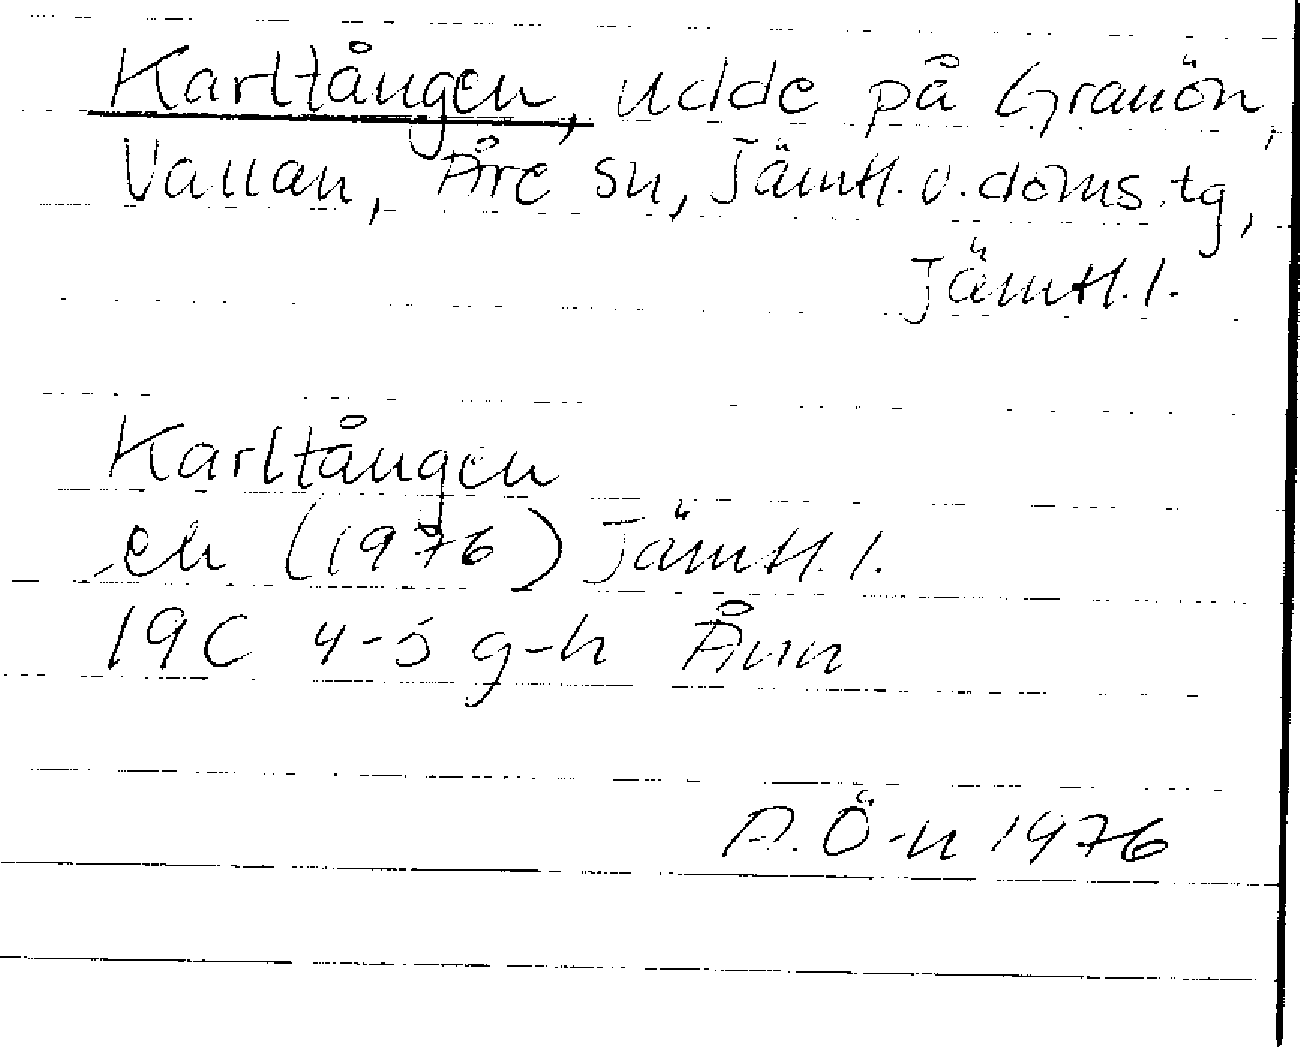 Karltången, udde på Granön,
Vallan, Åre sn, Jämtl. v. doms. tg,
Jämtl. l.
Karltången
ek (1976) Jämtl. l.
19C 4-5 g-h Ånn
A. Ö-n 1976